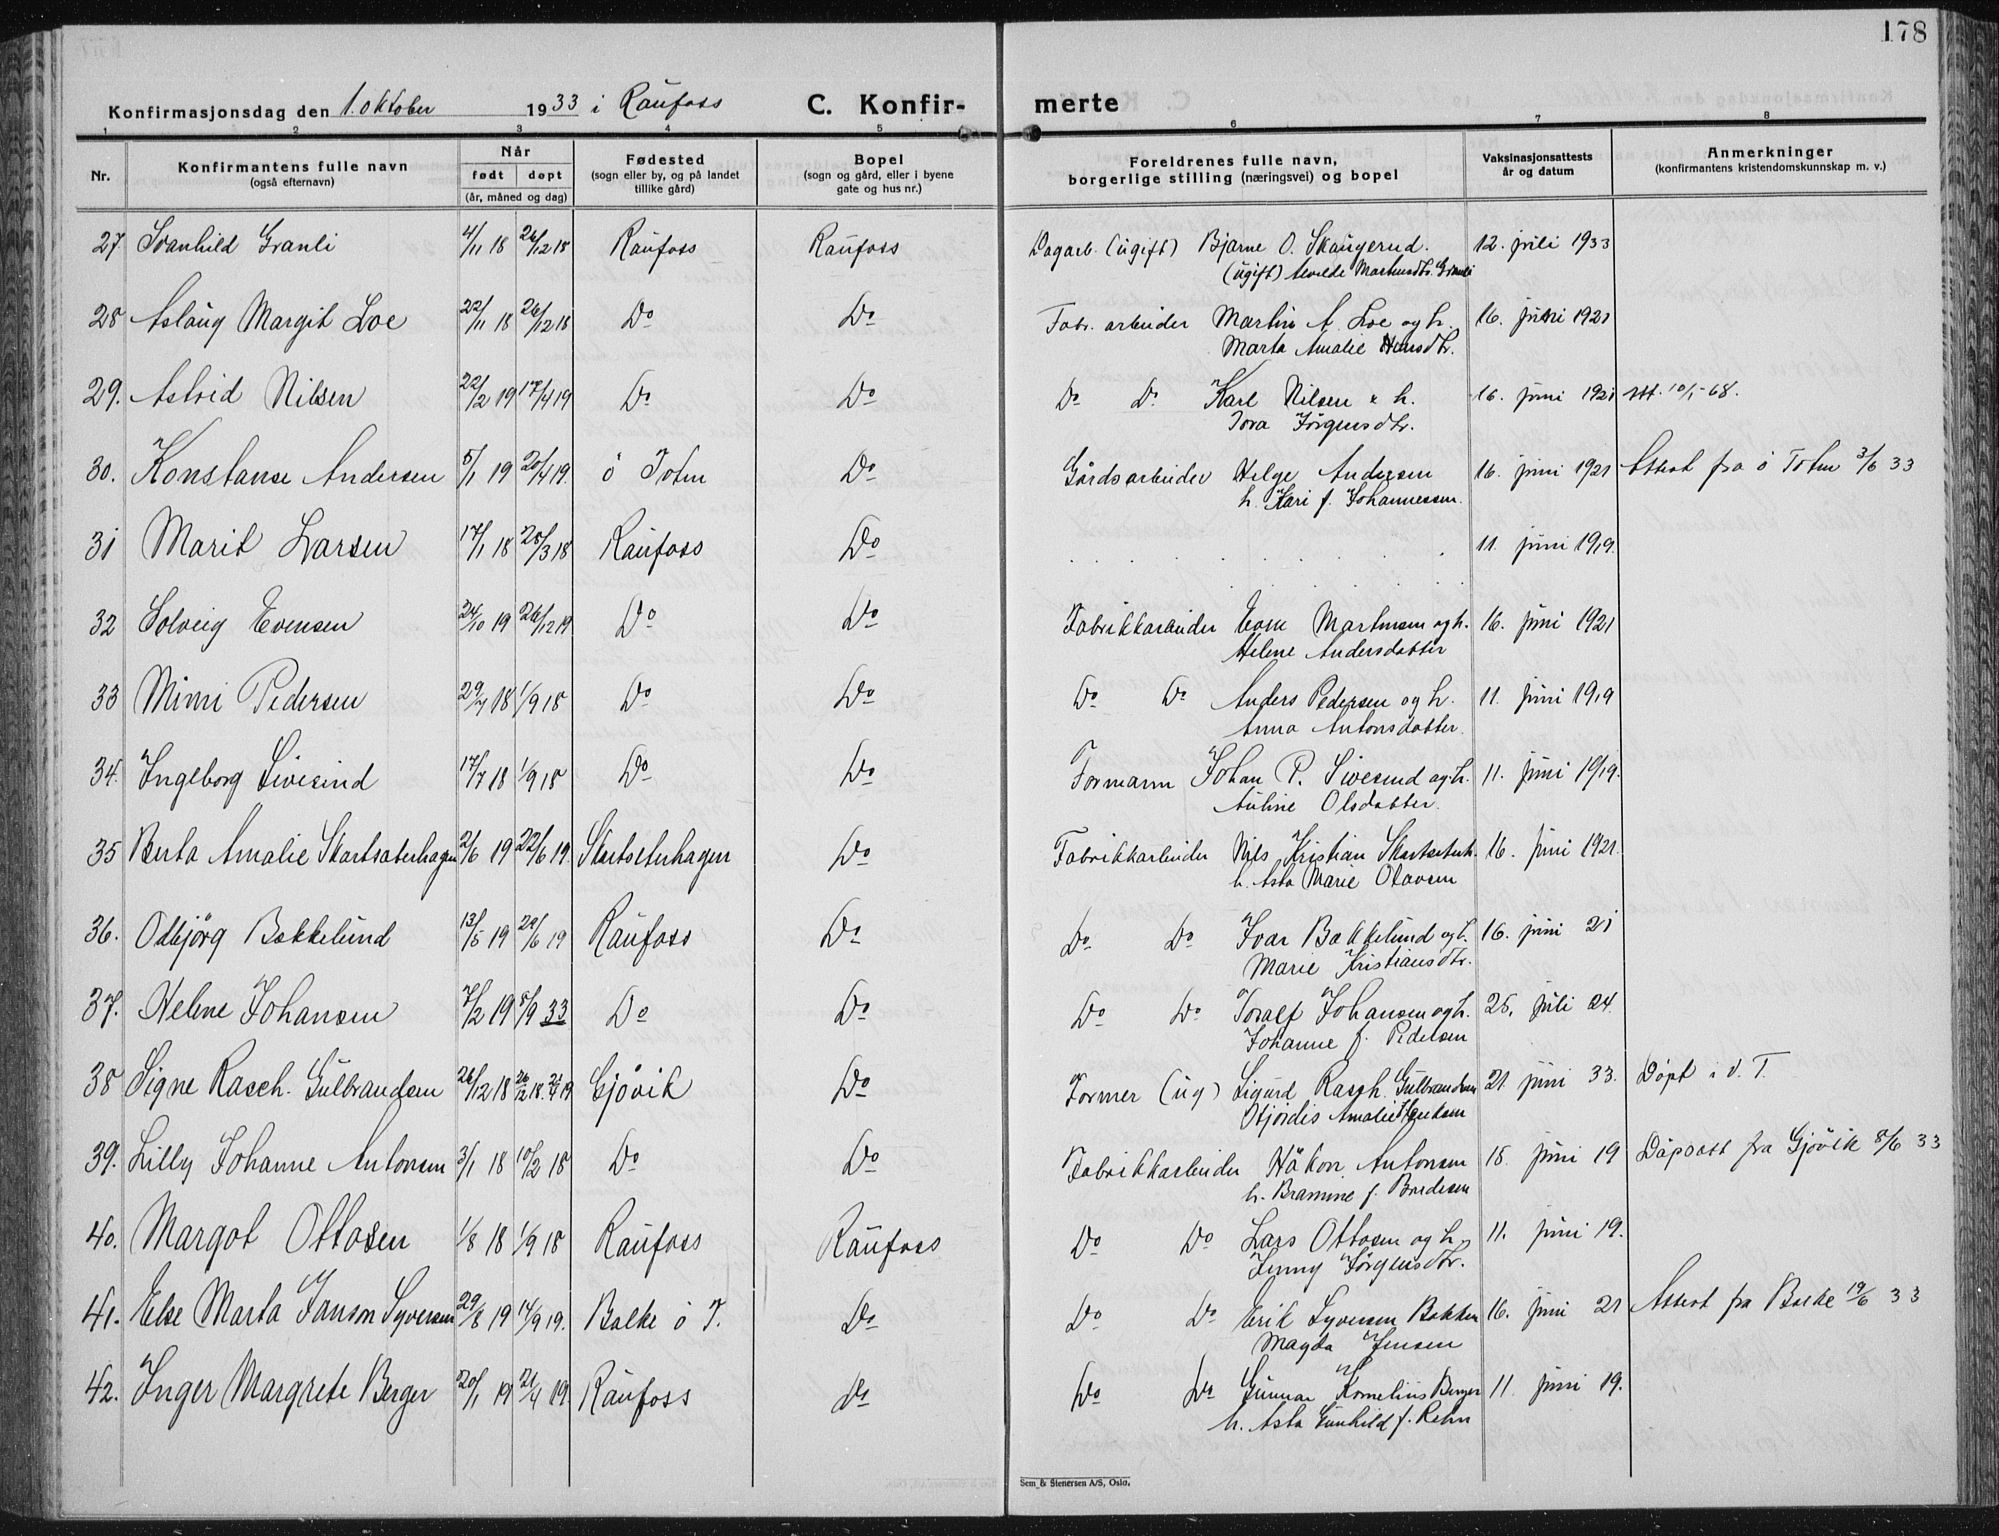 178
Konfirmasjonsdag den 1. oktober 1933 i Raufoss C. Konfirmerte
1 2 3 4 5 6 7 8
Nr. Konfirmantens fulle navn (også efternavn) Når født døpt (år, måned og dag) Fødested (sogn eller by, og på landet tillike gård) Bopel (sogn og gård, eller i byene gate og hus nr.) Foreldrenes fulle navn, borgerlige stilling (næringsvei) og bopel Vaksinasjonsattests år og datum Anmerkninger (konfirmantens kristendomskunnskap m. v.)
27 Svanhild Granli 4/11 18 26/12 18 Raufoss Raufoss Dagarb. (ugift) Bjarne O. Skaugerud. 12. juli 1933
(ugift) Alvilde Martinusdtr. Granli
28 Aslaug Margit Loe 22/11 18 26/12 18 Do Do Fabr. arbeider Martin A. Loe og h. 16. juni 1921
Marta Amalie Hansdtr.
29. Astrid Nilsen 22/2 19 17/4 19 Do Do Do Do Karl Nilsen & h. 16. juni 1921 utt. 10/1-68.
Tora Jørgensdtr.
30. Konstanse Andersen 5/1 19 20/4 19. ö Totn Do Gårdsarbeider Helge Andersen 16. juni 1921 Attest fra ö Totn 3/6 33
h. Kari f. Johannessen.
31 Marit Larsen 17/1 18 28/3 18 Raufoss Do . . . . . . . 11. juni 1919.
32 Solveig Evensen 24/10 19 26/12 19 Do Do Fabrikkarbeider Even Martinsen og h. 16. juni 1921
Helene Andersdatter
33 Mimi Pedersen 29/7 18 1/9 18 Do Do Do Do Anders Pedersen og h. 11. juni 1919
Anna Antonsdatter.
34. Ingeborg Sivesind 17/7 18 1/9 18 Do Do Formann Johan P. Sivesind og h. 11. juni 1919.
Auline Olsdatter.
35 Berta Amalie Skartsæterhagen 2/6 19 22/6 19. Skartseterhagen Do Fabrikkarbeider Nils Kristian Skartseterh. 16. juni 1921.
h. Asta Marie Olavsen
36. Odbjörg Bakkelund 13/5 19 29/6 19 Raufoss Do Do Do Ivar Bakkelund og h. 16. juni 21
Marie Kristiansdtr.
37. Helene Johansen 7/2 19 5/9 33 Do Do Do Do Toralf Johansen og h. 25. juli 24.
Johanne f. Pedersen
38 Signe Rasch. Gulbrandsen 26/12 18 Gjövik Do Former (ug) Sigurd Rasch. Gulbrandsen 21 juni 33. Döpt i V. T.
Hjördis Amalie
39. Lilly Johanne Antonsen 3/1 18 10/2 18 Do Do Fabrikkarbeider Håkon Antonsen 18. juni 19 Dåpsatt fra Gjövik 8/6 33
h. Bramine f. Bredesen
40. Margot Ottosen 1/8 18 1/9 18 Raufoss Raufoss Do Do Lars Ottosen og h. 11. juni 19.
Jenny Jörgensdtr.
41. Else Marta Janson Syversen 29/8 19 14/9 19. Balke ö T. Do Do Do Erik Syversen Bakken 16. juni 21 Attest fra Balke 19/6 33
Magda Jensen
42. Inger Margrete Berger 20/1 19 21/4 19. Raufoss Do Do Do Gunnar Kornelius Berger 11. juni 19.
h. Asta Gunhild f. Rehn
Sem & Stenersen A/S, Oslo.